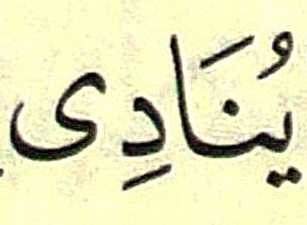 يُنَادِى